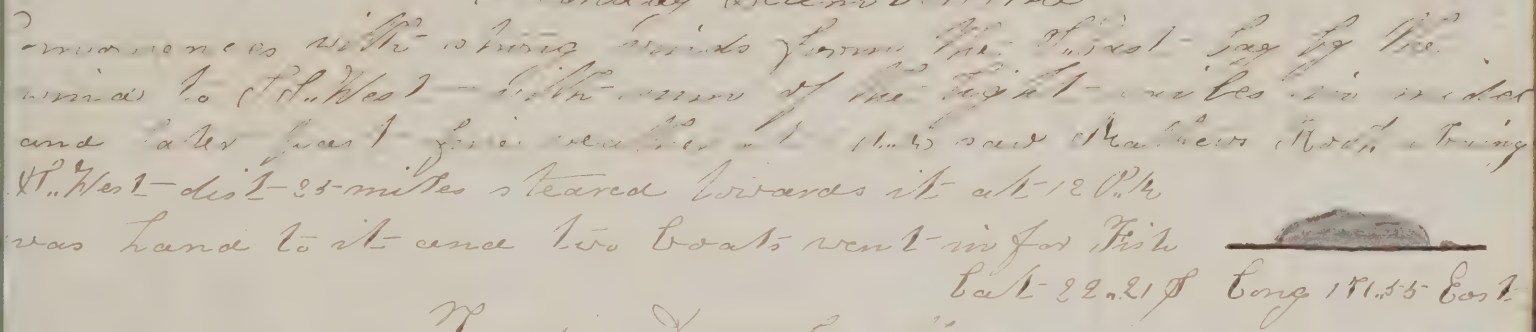 Commences with strong winds form the S.East lay by the
wind to S.S.West with         of the light sailes in middel
and later part fine weather at       saw Mathews Rock being
S.West dist 25 miles steared towards it at 12 P.M
was hand to it and two boats went in for Fish
Lat 22.21 S Long 171.55 East